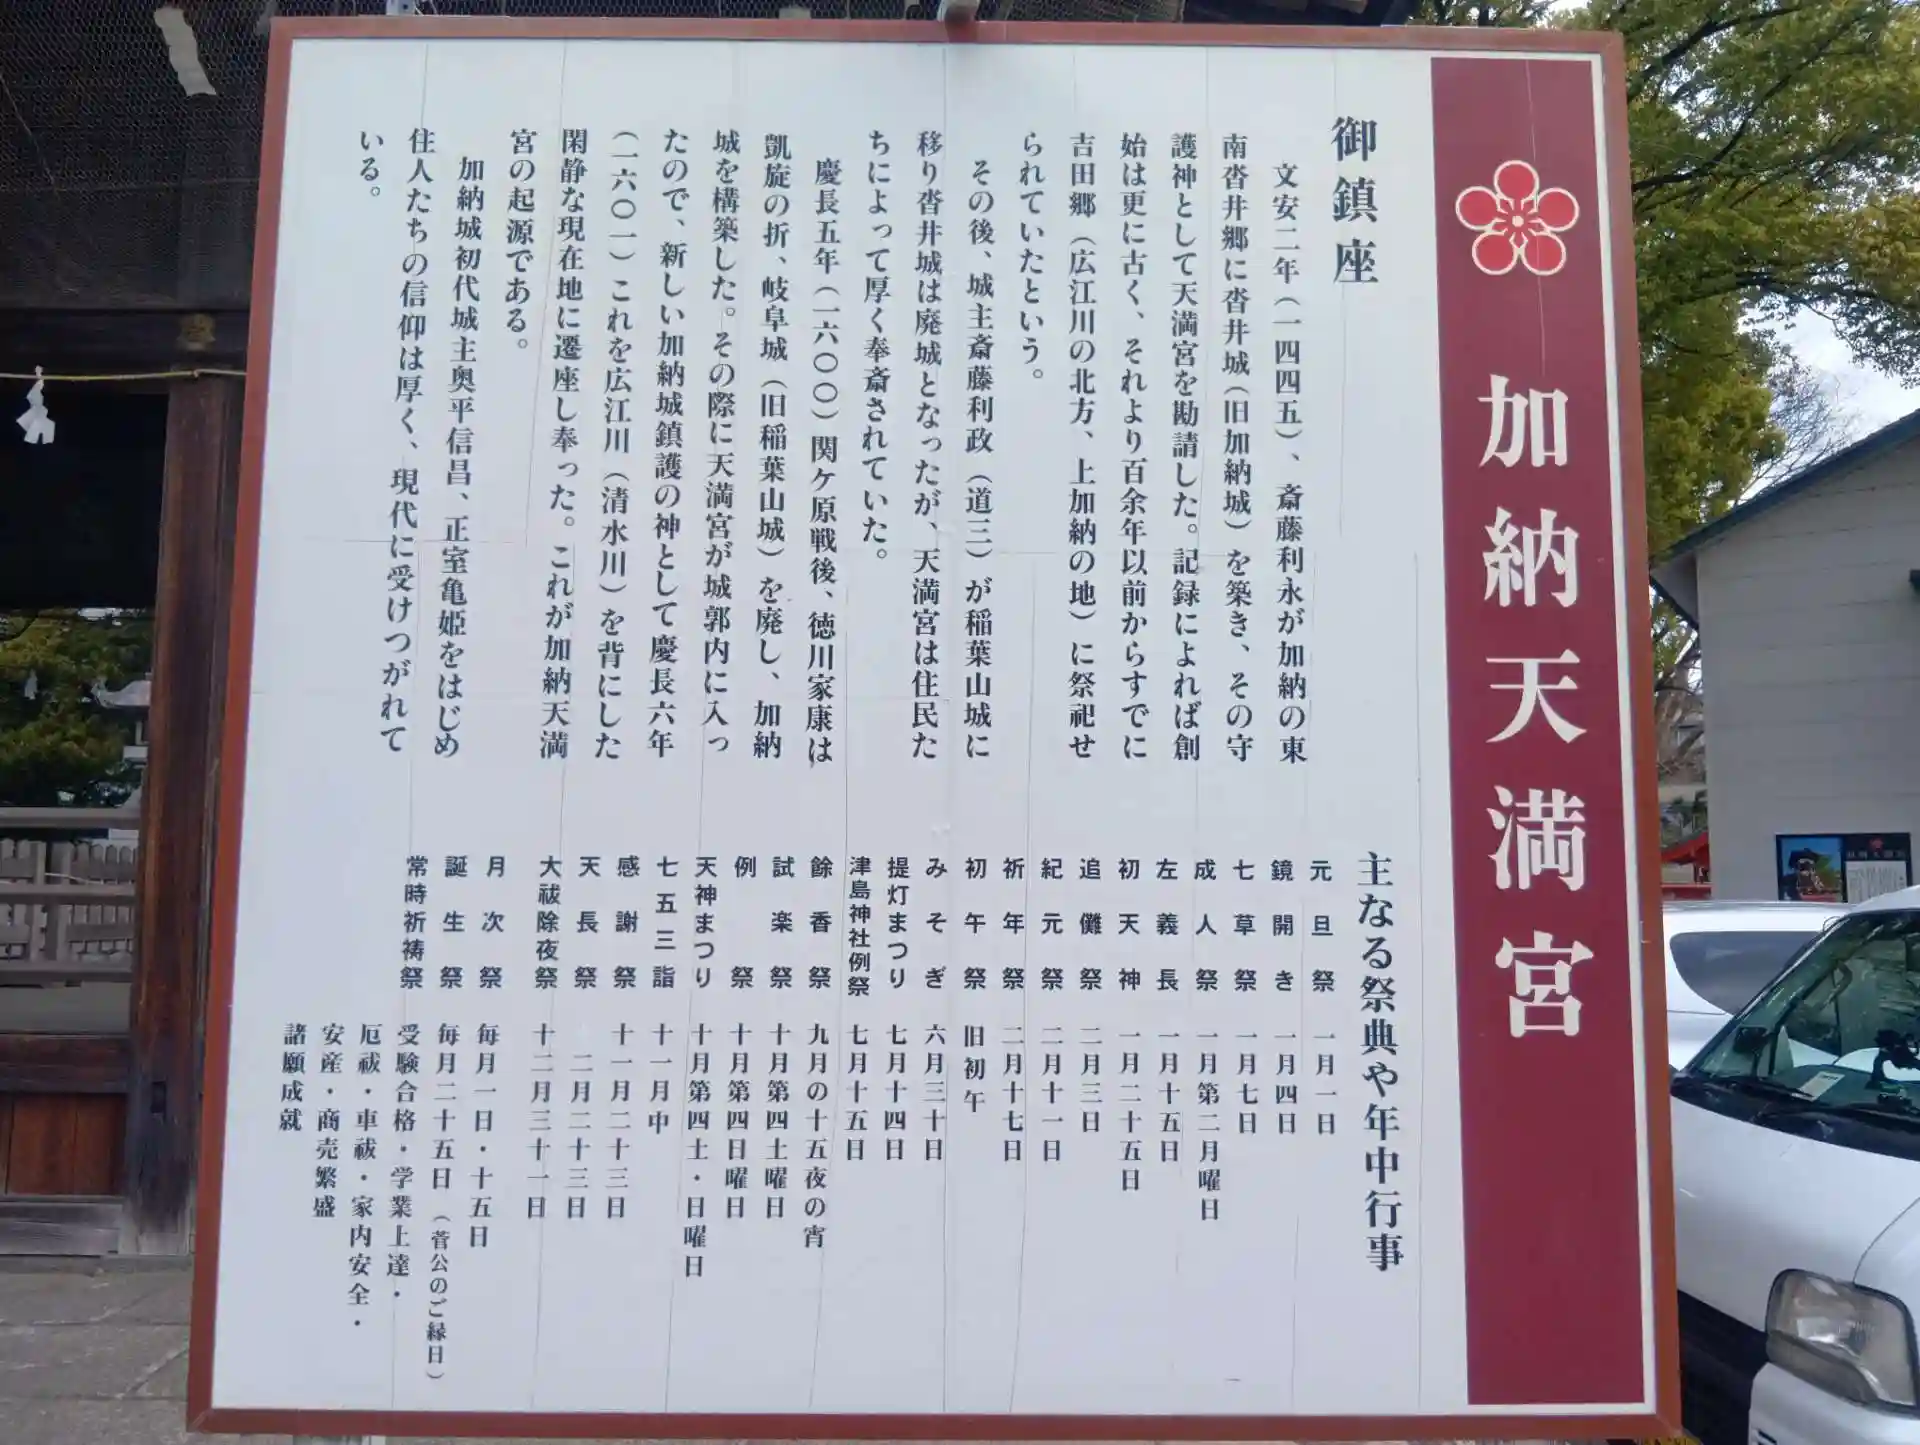 加納天満宮
御鎮座
文安二年(一四四五)、斎藤利永が加納の東
南沓井郷に沓井城(旧加納城)を築き、その守
護神として天満宮を勘請した。記録によれば創
始は更に古く、それより百余年以前からすでに
吉田郷(広江川の北方、上加納の地)に祭祀せ
られていたという。
その後、城主斎藤利政(道三)が稲葉山城に
移り沓井城は廃城となったが、天満宮は住民た
ちによって厚く奉斎されていた。
慶長五年(一六〇〇)関ケ原戦後、徳川家康は
凱旋の折、岐阜城(旧稲葉山城)を廃し、加納
城を構築した。その際に天満宮が城郭内に入っ
たので、新しい加納城鎮護の神として慶長六年
(一六〇一)これを広江川(清水川)を背にした
閑静な現在地に遷座し奉った。これが加納天満
宮の起源である。
加納城初代城主奥平信昌、正室亀姫をはじめ
住人たちの信仰は厚く、現代に受けつがれて
いる。
主なる祭典や年中行事
元旦祭 一月一日
鏡開き 一月四日
七草祭 一月七日
成人祭 一月第二月曜日
左義長 一月十五日
初天神 一月二十五日
追儺祭 二月三日
紀元祭 二月十一日
祈年祭 二月十七日
初午祭 旧初午
みそぎ 六月三十日
提灯まつり 七月十四日
津島神社例祭 七月十五日
餘香祭 九月の十五夜の宵
試楽祭 十月第四土曜日
例祭 十月第四日曜日
天神まつり 十月第四土・日曜日
七五三詣 十一月中
感謝祭 十一月二十三日
天長祭 二月二十三日
大祓除夜祭 十二月三十一日
月次祭 毎月一日・十五日
誕生祭 毎月二十五日(菅公のご縁日)
常時祈祷祭 受験合格・学業上達・
厄祓・車祓・家内安全・
安産・商売繁盛
諸願成就